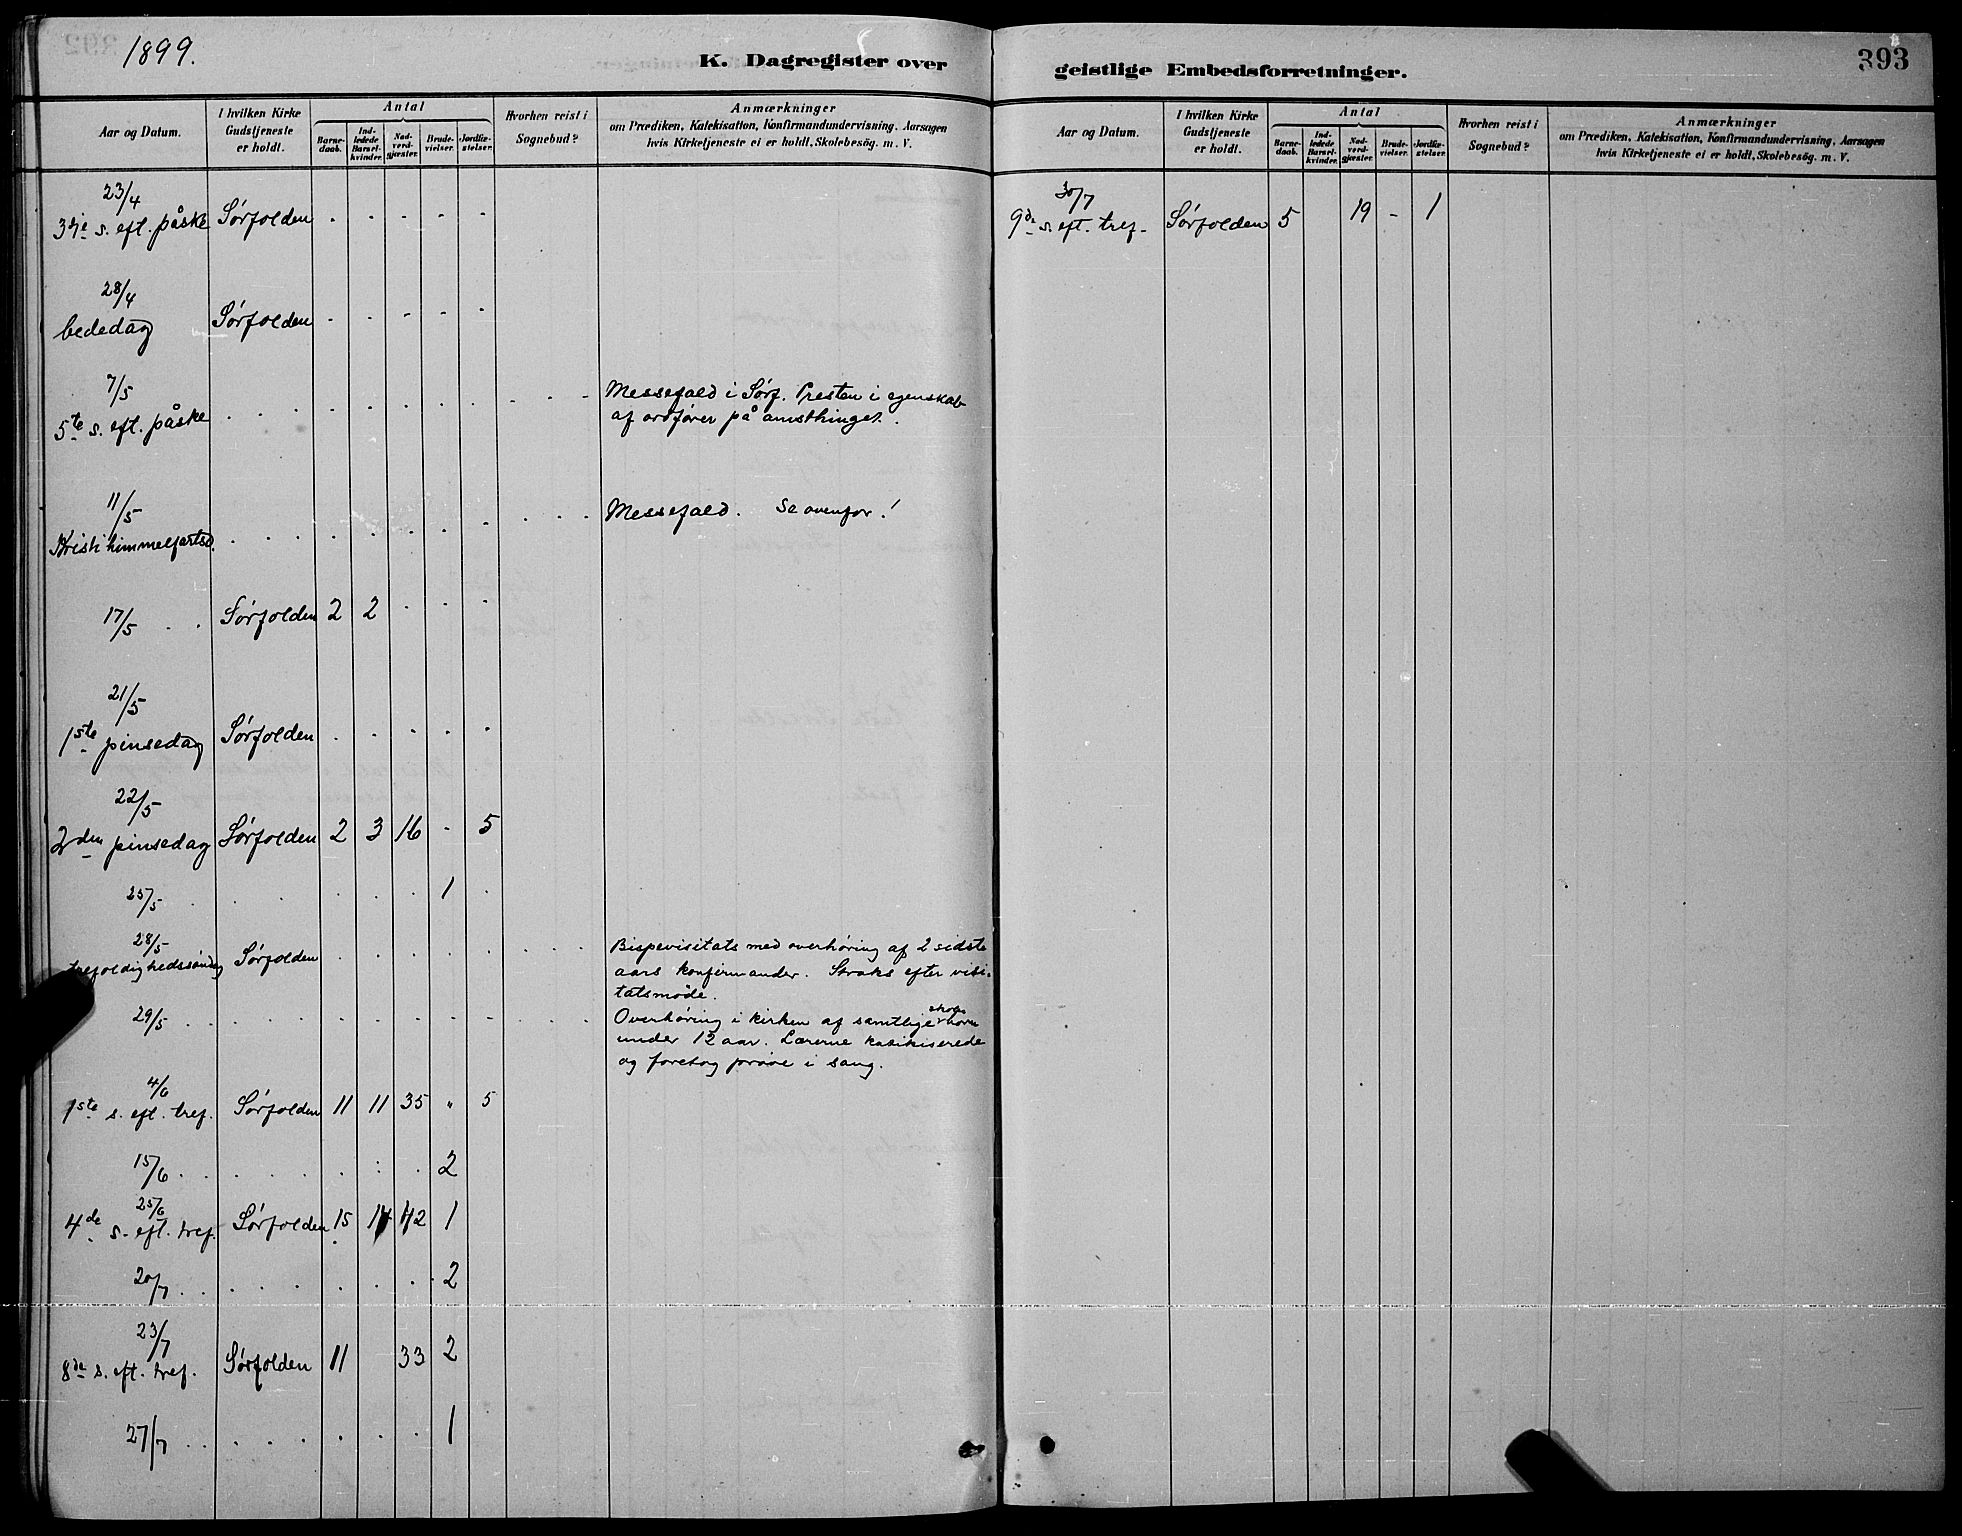 1899.
K. Dagregister over geistlige Embedsforretninger.
393
Aar og Datum.
I hvilken Kirke Gudstjeneste er holdt.
Antal
Barnedaab.
Indledede Barselkvinder.
Nadverdgjæster.
Brudevielser.
Jordfæstelser.
Hvorhen reist i Sognebud?
Anmærkninger
om Prædiken, Katekisation, Konfirmandundervisning, Aarsagen
hvis Kirketjeneste ei er holdt, Skolebesøg. m. V.
23/4
3dje s. eft. påske Sørfolden - - - - -
28/4
bededag Sørfolden - - - - -
7/5
5te s. eft. påske . . . . . . . . . . Messefald i Sørf. Presten i egenskab
af ordfører på amsthinget.
11/5
Kristi himmelfartsd. . . . . . . . . . Messefald. Se ovenfor!
17/5 . . Sørfolden 2 2 . . .
21/5
1ste pinsedag Sørfolden . . . . .
22/5
2den pinsedag Sørfolden 2 3 16 - 5
25/5 . . . . . . . 1 .
28/5
trefoldighedssøndag Sørfolden . . . . . . . . Bispevisitats med overhøring af 2 sidste
aars konfirmander. Straks efter visi-
tatsmøde.
29/5 . . . . . . . . . . . Overhøring i kirken af samtlige skolebørn
under 12 aar. Lærerne katikiserede
og foretog prøve i sang.
4/6
1ste s. eft. tref. Sørfolden 11 11 35 " 5
15/6 . . . . . : . 2
25/6
4de s. eft. tref. Sørfolden 15 14 42 1
20/7 . . . . . . . 2
23/7
8de s. eft. tref. Sørfolden 11 33 2
27/7 . . . . . . . . 1
Aar og Datum.
I hvilken Kirke Gudstjeneste er holdt.
Antal
Barnedaab.
Indledede Barselkvinder.
Nadverdgjæster.
Brudevielser.
Jordfæstelser.
Hvorhen reist i Sognebud?
Anmærkninger
om Prædiken, Katekisation, Konfirmandundervisning, Aarsagen
hvis Kirketjeneste ei er holdt, Skolebesøg. m. V.
30/7
9de s. eft. tref. Sørfolden 5 19 - 1